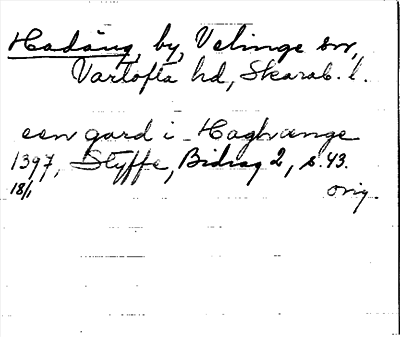 Hadäng, by, Velinge sn,
Vartofta hd, Skarab. l.
een gard i Haghænge
1397, Styffe, Bidrag 2, s. 43.
18/1 orig.